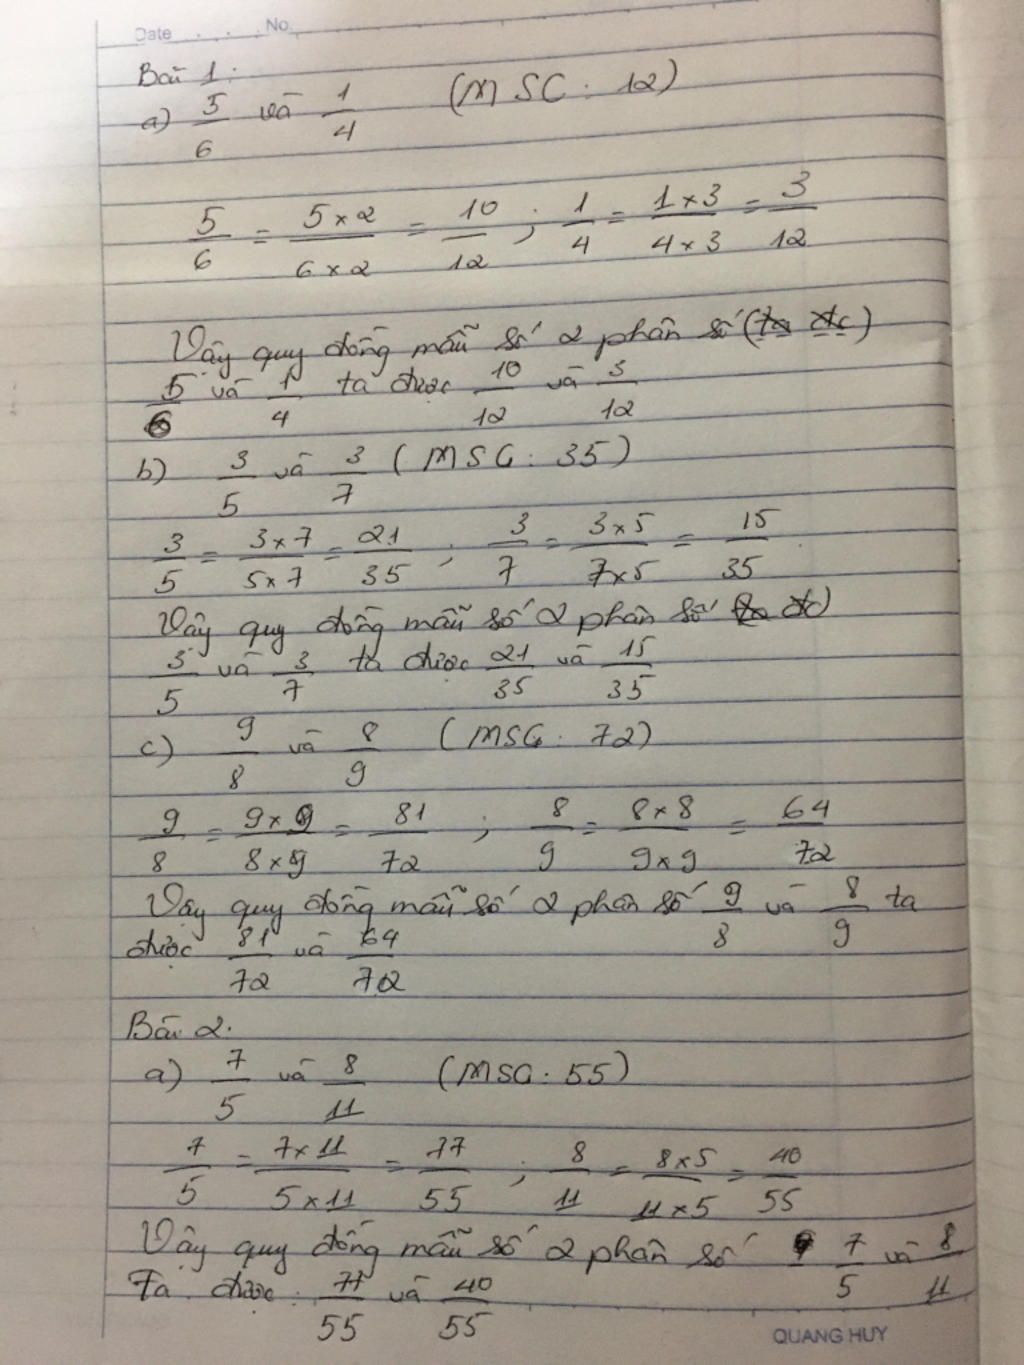 Date . . . No.
Bài 1:
a) 5/6 và 1/4 (MSC: 12)
5/6 = 5×2/6×2 = 10/12 ; 1/4 = 1×3/4×3 = 3/12
Vậy quy đồng mẫu số 2 phân số (ta đc)
5/6 và 1/4 ta được 10/12 và 3/12
b) 3/5 và 3/7 (MSC: 35)
3/5 = 3×7/5×7 = 21/35 ; 3/7 = 3×5/7×5 = 15/35
Vậy quy đồng mẫu số 2 phân số ta đc)
3/5 và 3/7 ta được 21/35 và 15/35
c) 9/8 và 8/9 (MSC: 72)
9/8 = 9×9/8×9 = 81/72 ; 8/9 = 8×8/9×9 = 64/72
Vậy quy đồng mẫu số 2 phân số 9/8 và 8/9 ta
được 81/72 và 64/72
Bài 2.
a) 7/5 và 8/11 (MSC: 55)
7/5 = 7×11/5×11 = 77/55 ; 8/11 = 8×5/11×5 = 40/55
Vậy quy đồng mẫu số 2 phân số 7/5 và 8/11
Ta được: 77/55 và 40/55
QUANG HUY